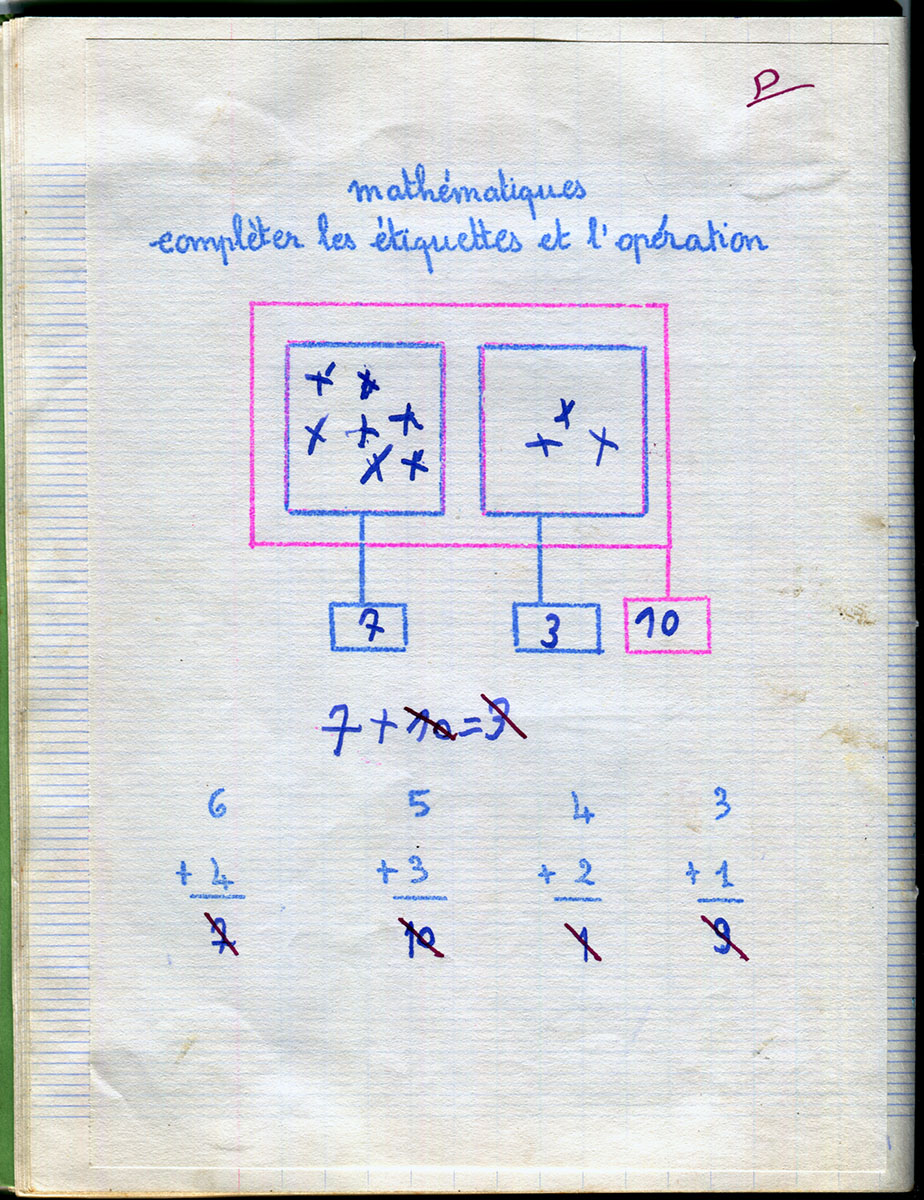 P
mathématiques
complèter les étiquettes et l'opération
7 3 10
7 + 10 = 3
6 5 4 3
+ 4 + 3 + 2 + 1
7 10 1 9